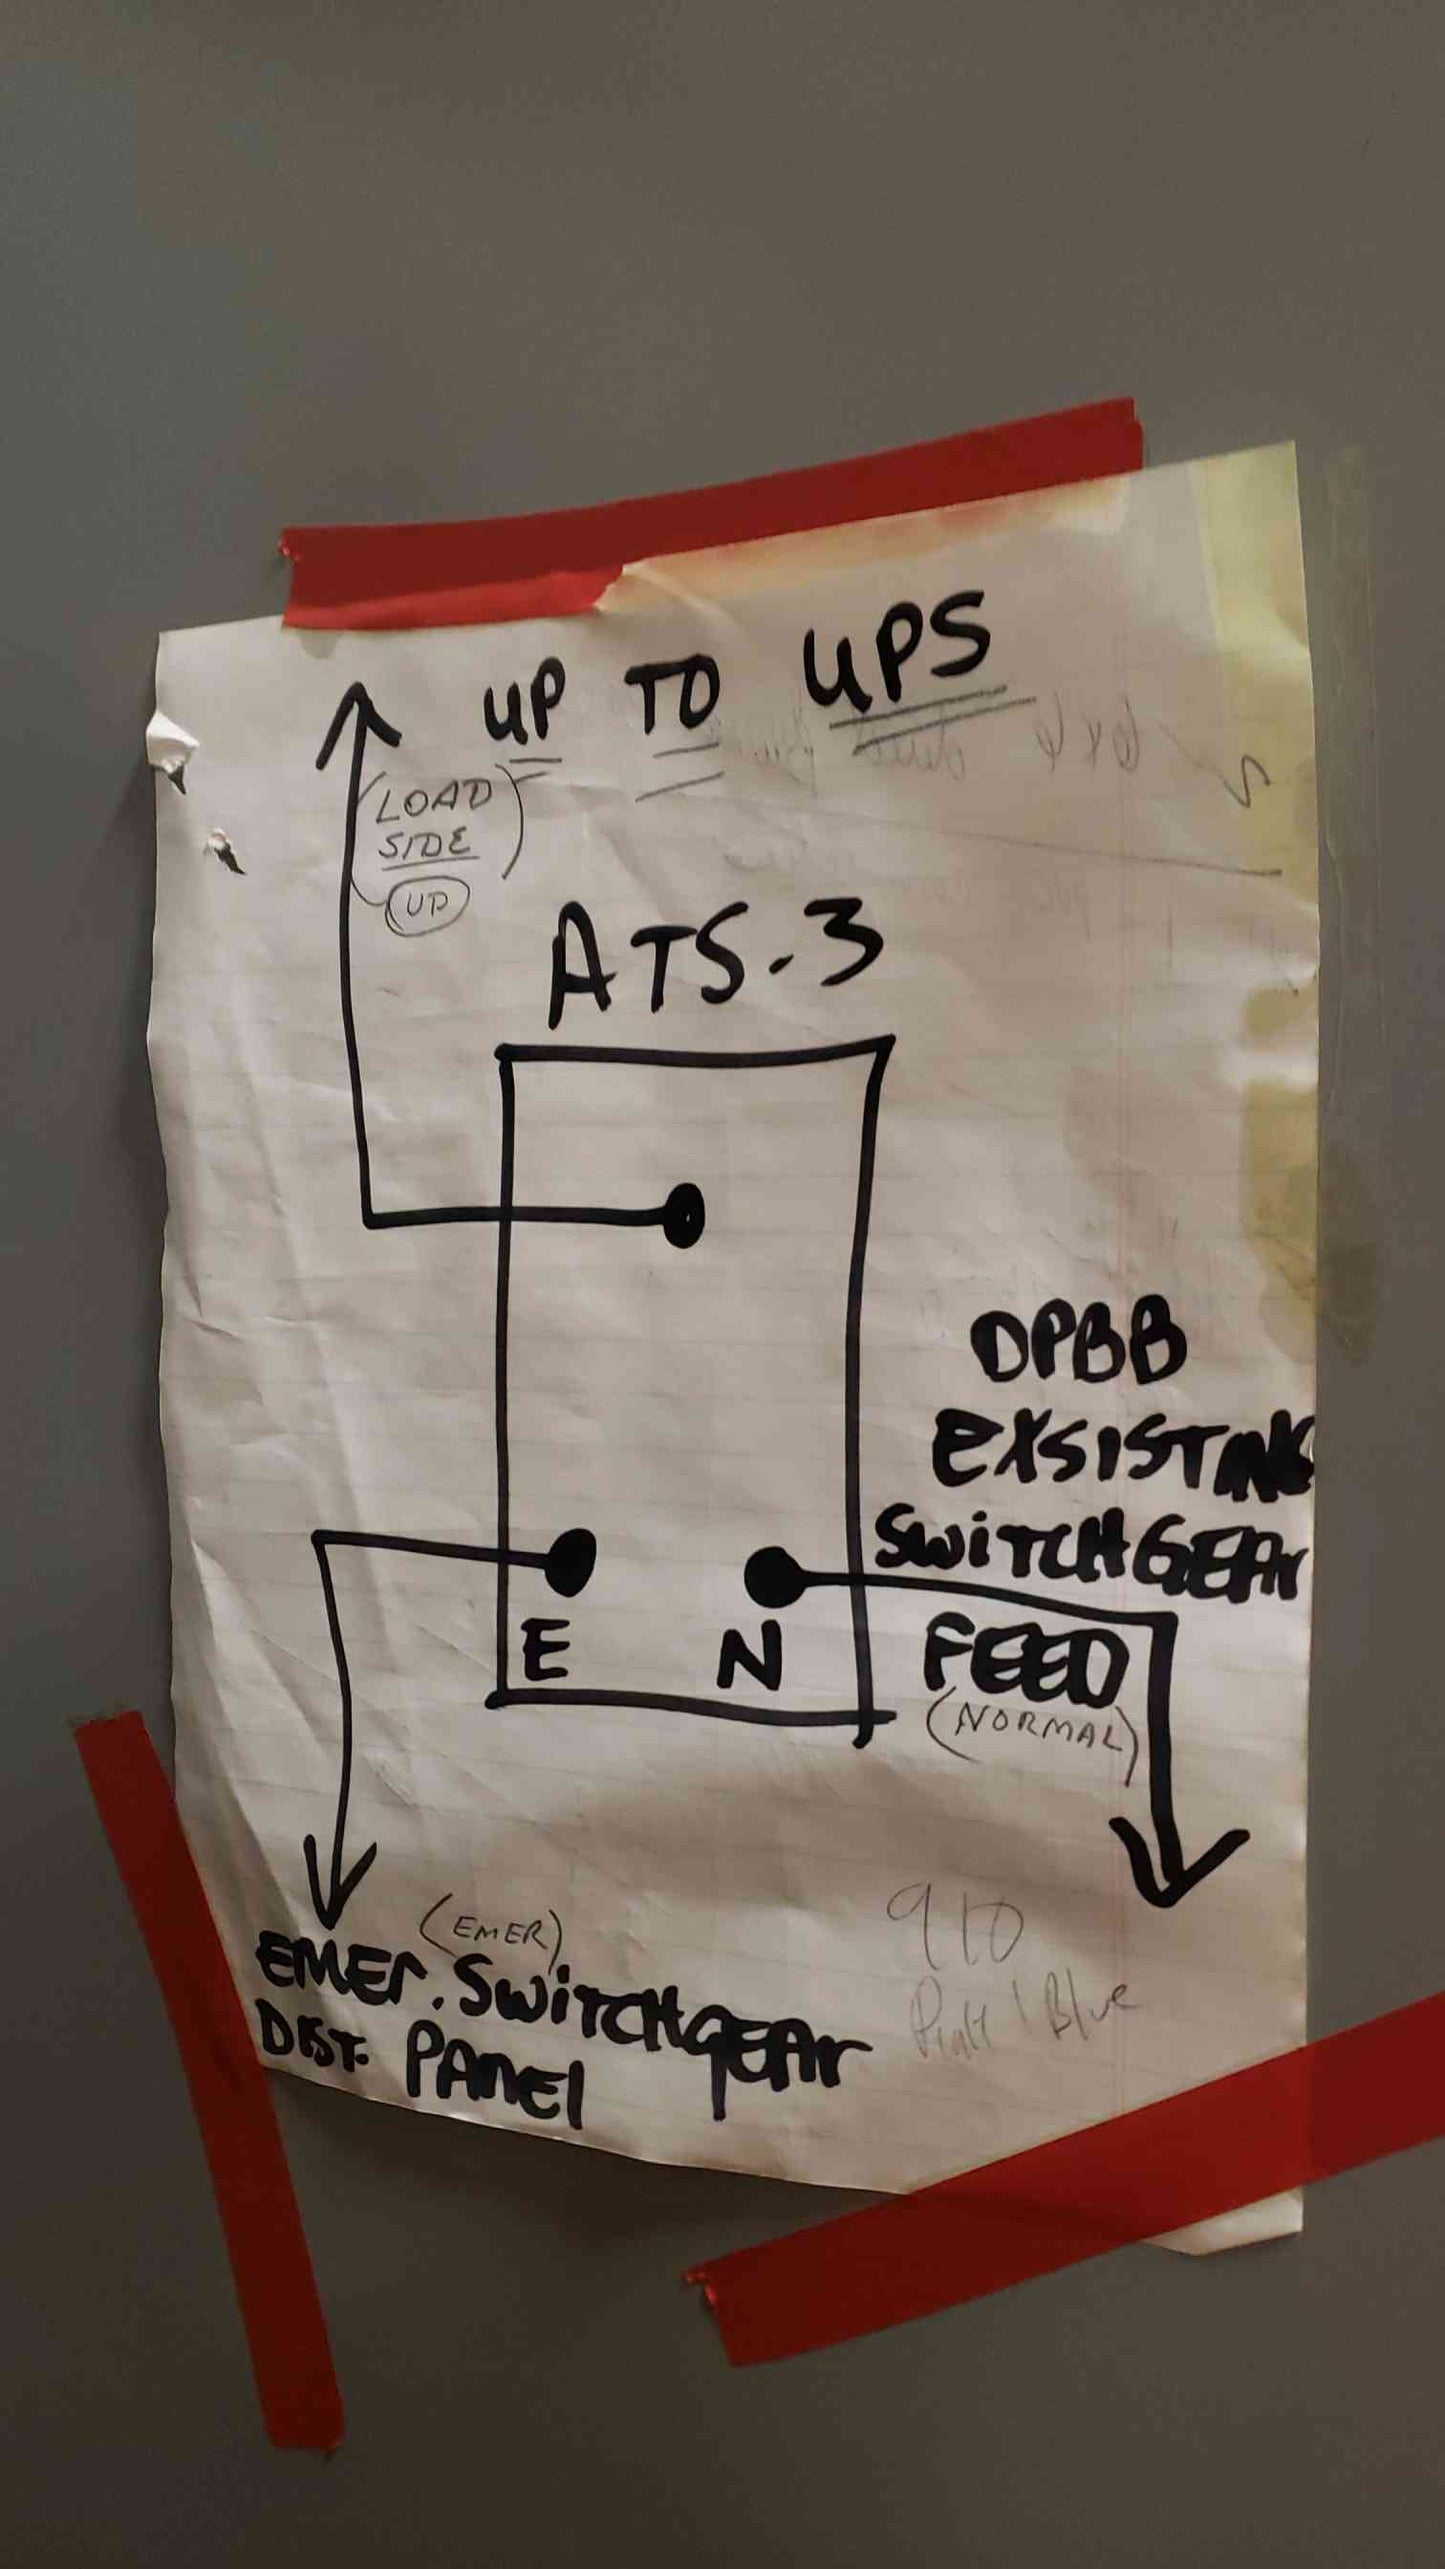 UP TO UPS
(LOAD
SIDE)
UP
ATS-3
DPBB
EXSISTING
SWITCHGEAr
FEED
(NORMAL)
E N
(EMER)
EMEr. SWITCHgEAr
DIST. PANEl
910
Blue